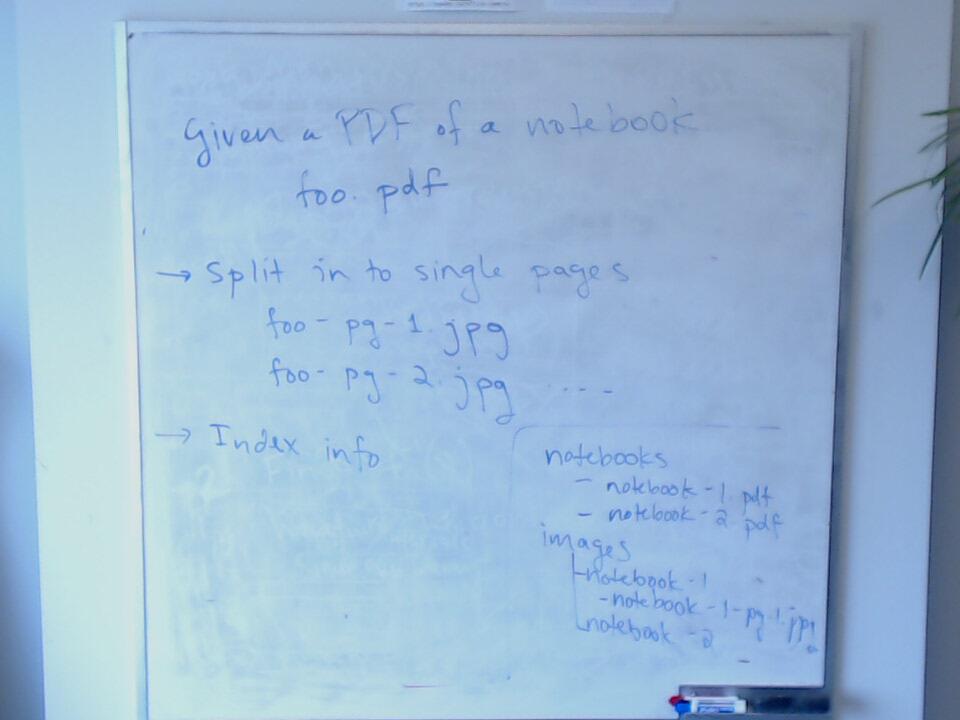 Given a PDF of a notebook
foo.pdf
→ Split in to single pages
foo-pg-1.jpg
foo-pg-2.jpg ....
→ Index info
notebooks
- notebook-1.pdf
- notebook-2.pdf
images
notebook-1
-notebook-1-pg-1.jpg
notebook-2